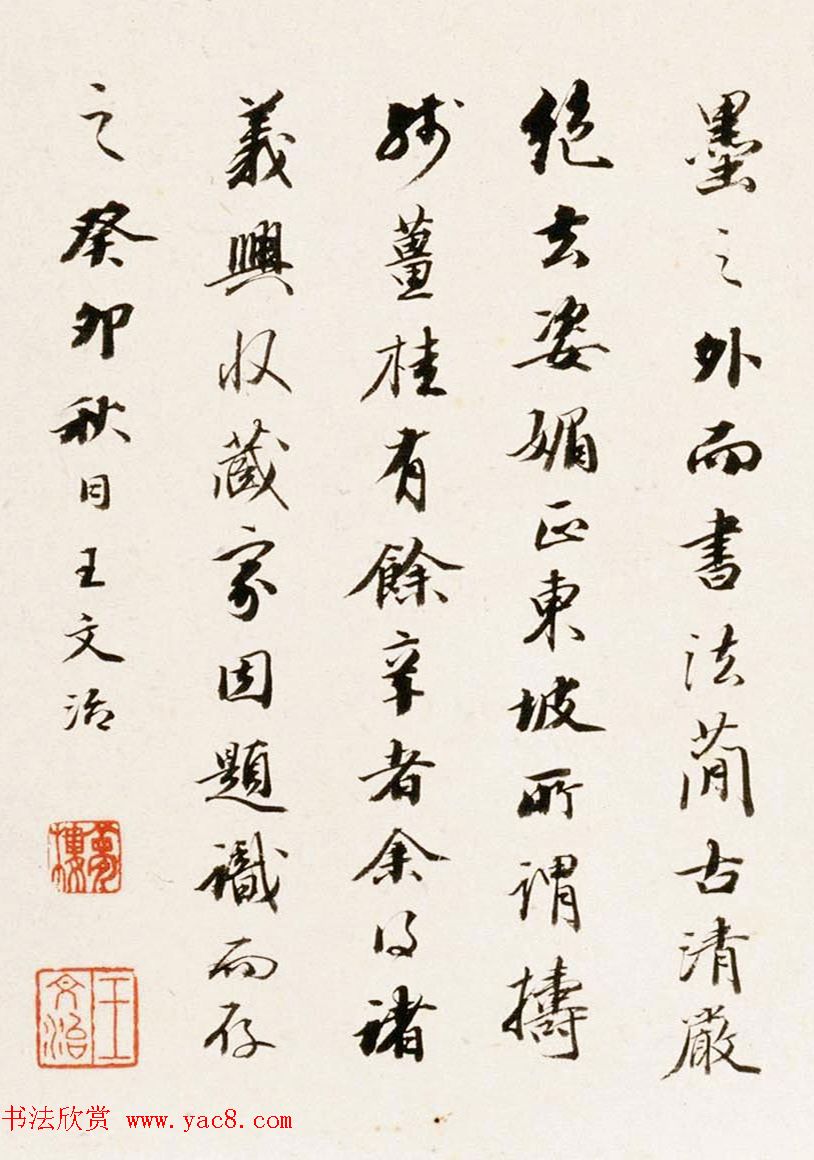 墨之外而書法簡古清嚴
絕去姿媚正東坡所謂擣
殘薑桂有餘辛者余得諸
義興收藏家因題識而存
之癸卯秋日王文治
夢樓
王文治
书法欣赏 www.yac8.com